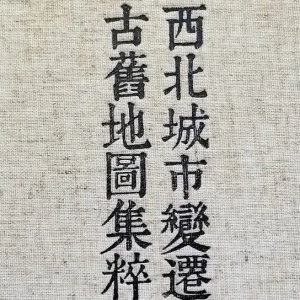 西北城市變遷
古舊地圖集粹